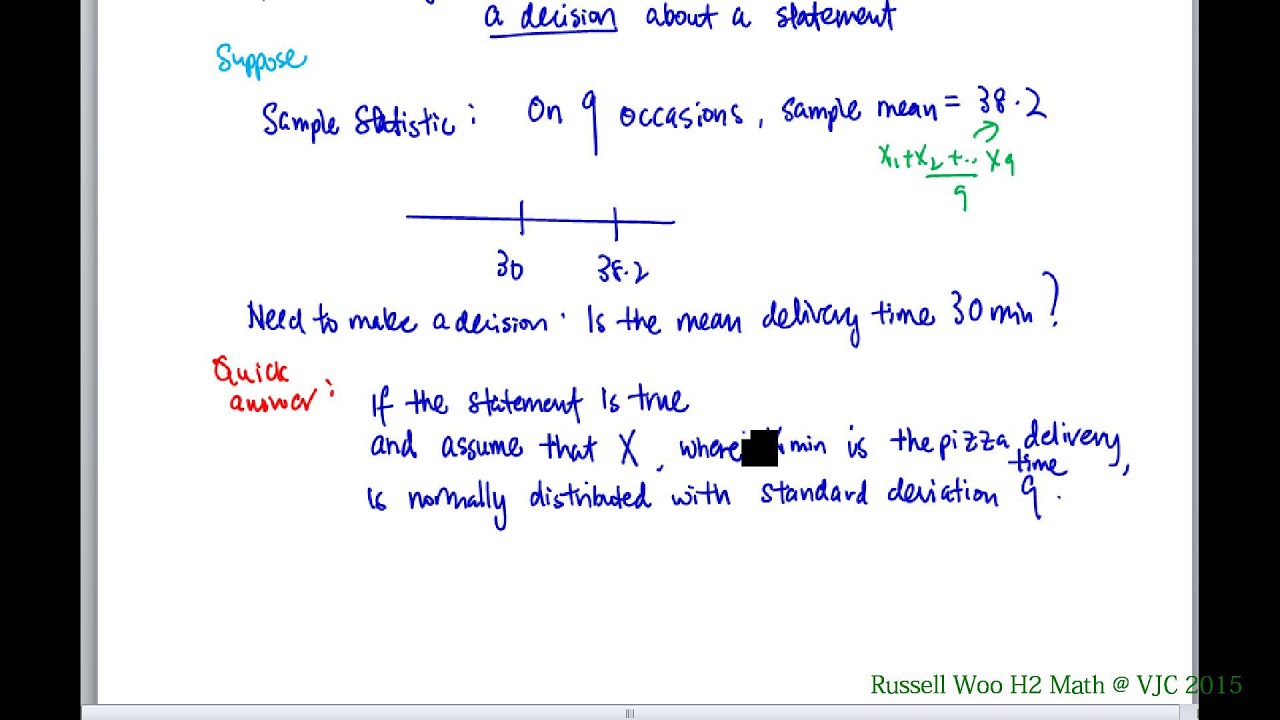 a decision about a statement
Suppose
Sample Statistic : On 9 occasions, sample mean = 38.2
x₁+x₂+... x₉
9
30 38.2
Need to make a decision. Is the mean delivery time 30 min?
Quick
answer :
If the statement is true
and assume that X, where min is the pizza delivery
time,
is normally distributed with standard deviation 9.
Russell Woo H2 Math @ VJC 2015